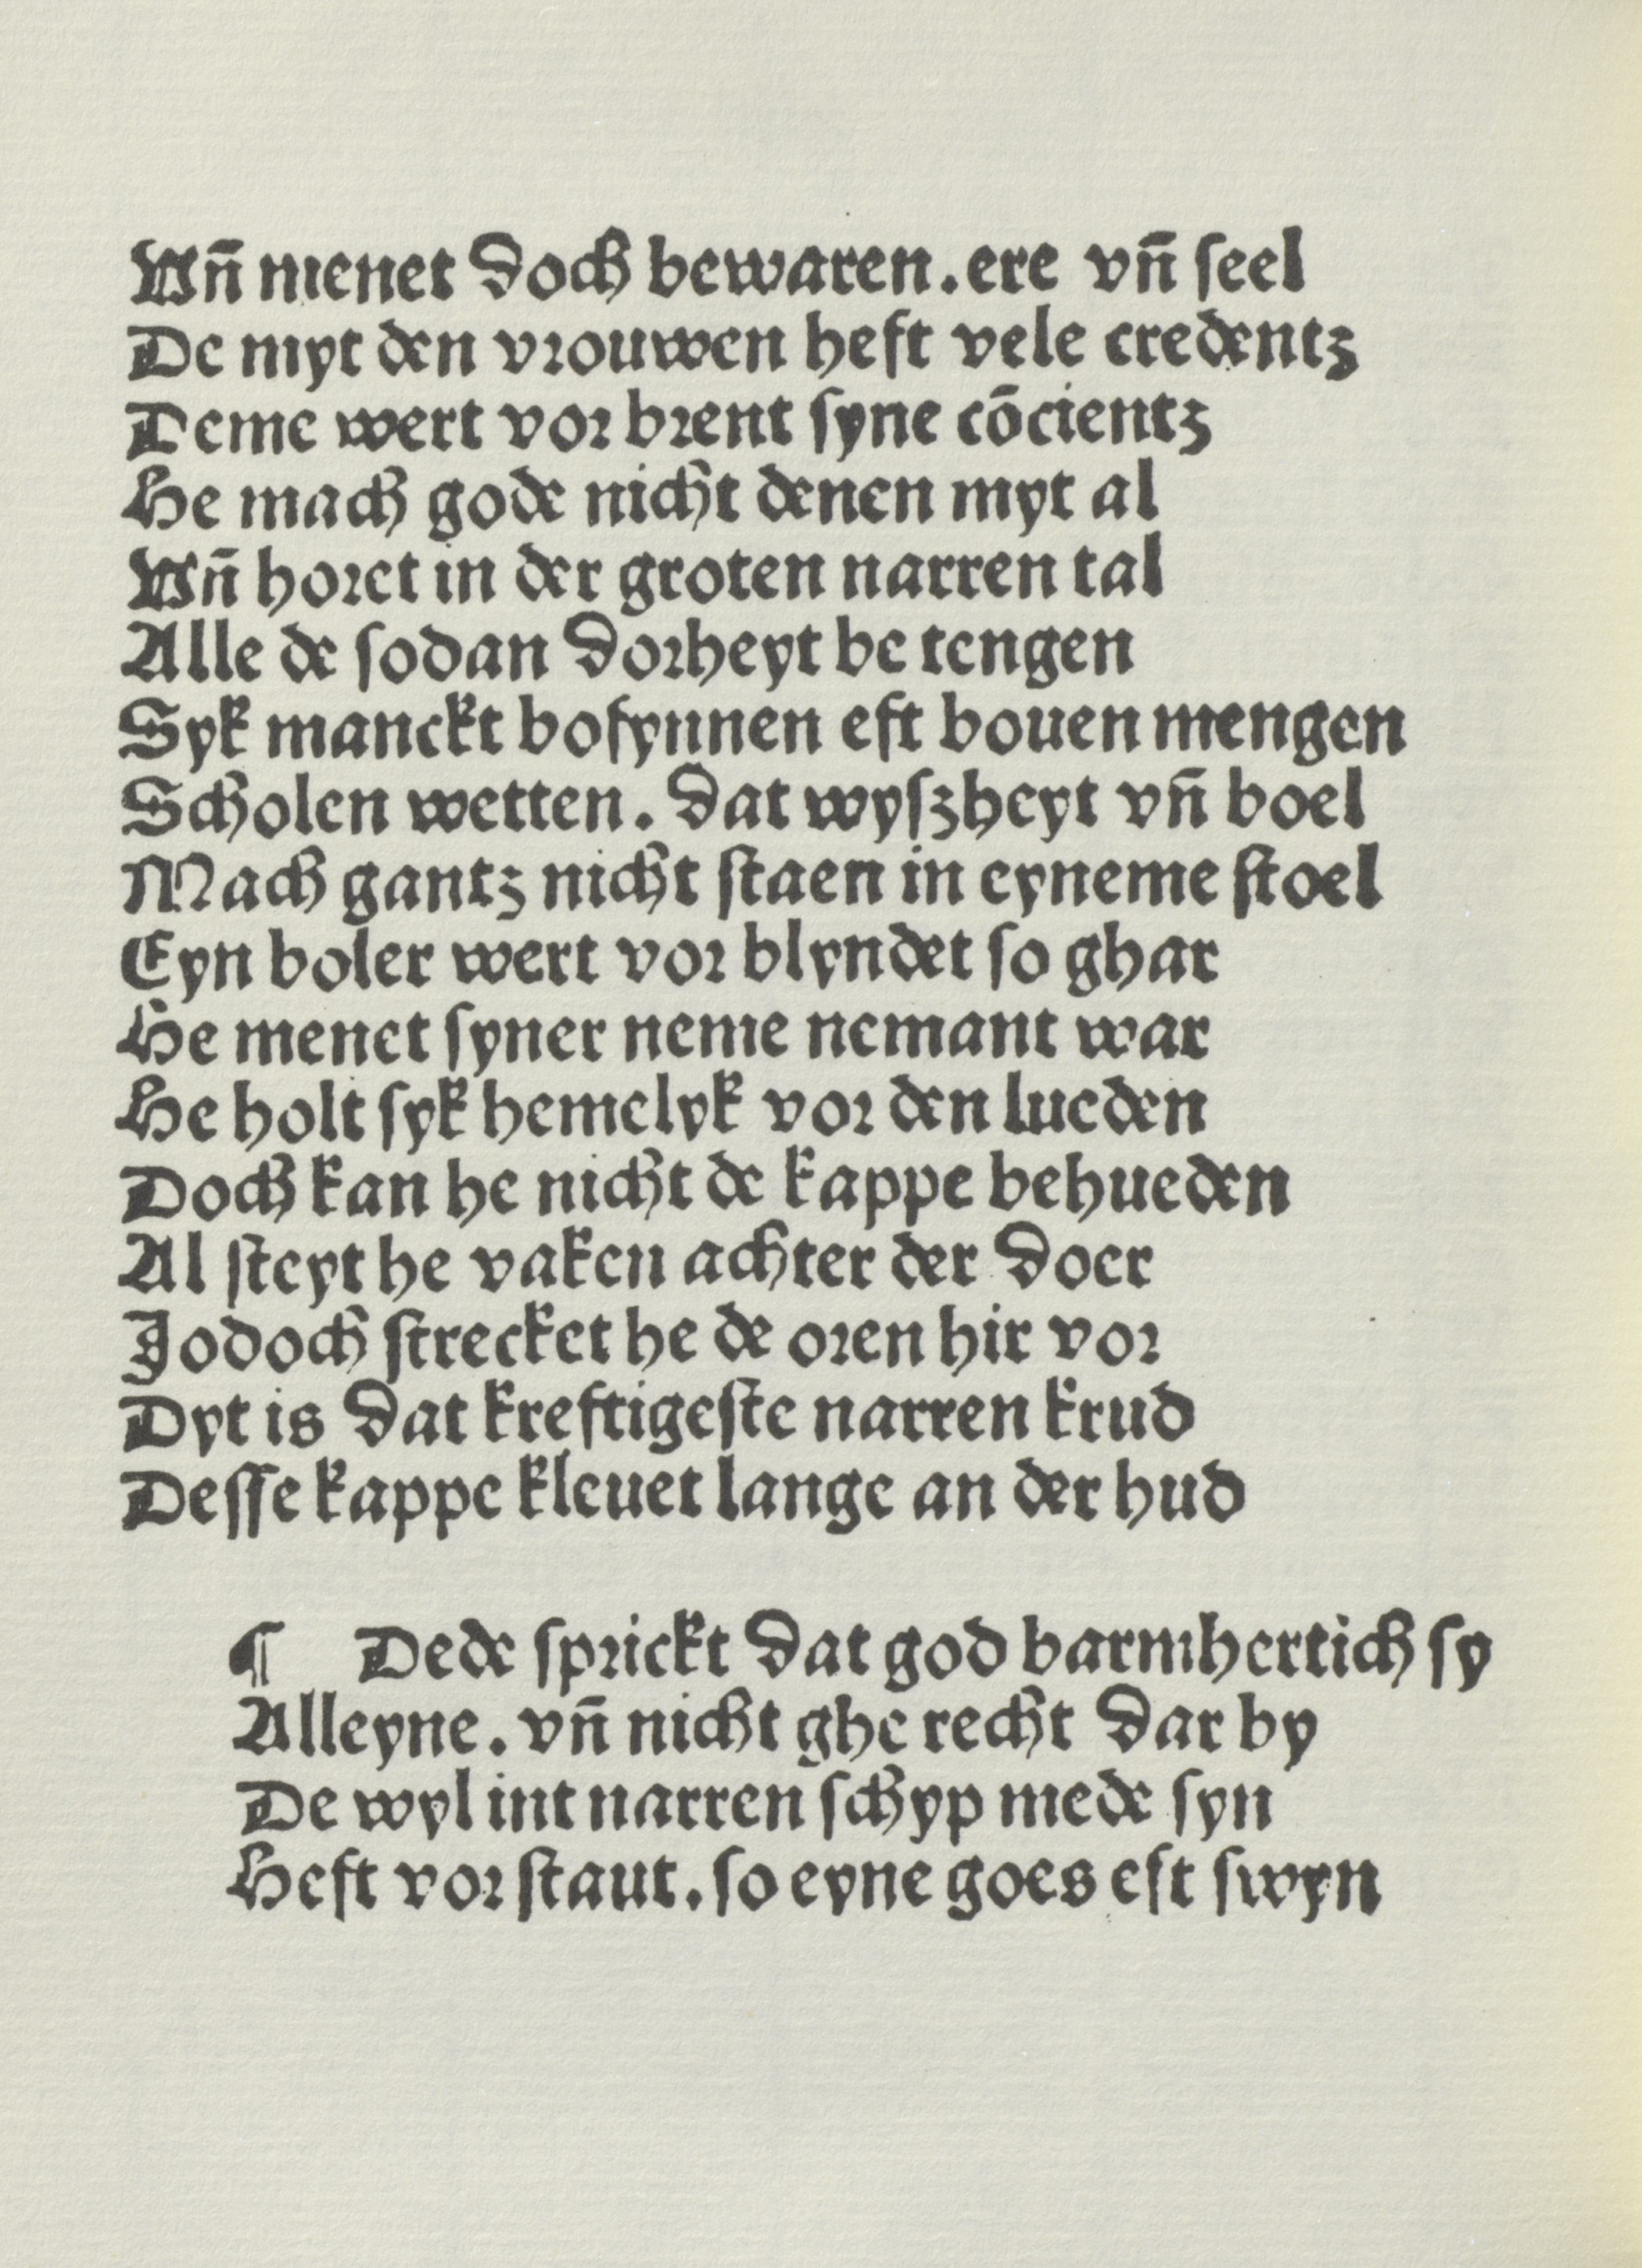 Vn̄ menet doch bewaren. ere vn̄ ſeel
De myt den vrouwen heft vele credentz
Deme wert vor brent ſyne cōcientz
He mach gode nicht denen myt al
Vn̄ horet in der groten narren tal
Alle de ſodan dorheyt be tengen
Syk manckt boſynnen eft bouen mengen
Scholen wetten. dat wyſzheyt vn̄ boel
Mach gantz nicht ſtaen in eyneme ſtoel
Eyn boler wert vor blyndet ſo ghar
He menet ſyner neme nemant war
He holt ſyk hemelyk vor den lueden
Doch kan he nicht de kappe behueden
Al ſteyt he vaken achter der doer
Jodoch ſtrecket he de oren hir vor
Dyt is dat kreftigeſte narren krud
Deſſe kappe kleuet lange an der hud
¶ Dede ſprickt dat god barmhertich ſy
Alleyne. vn̄ nicht ghe recht dar by
De wyl int narren ſchyp mede ſyn
Heft vor ſtaut. ſo eyne goes eft ſwyn